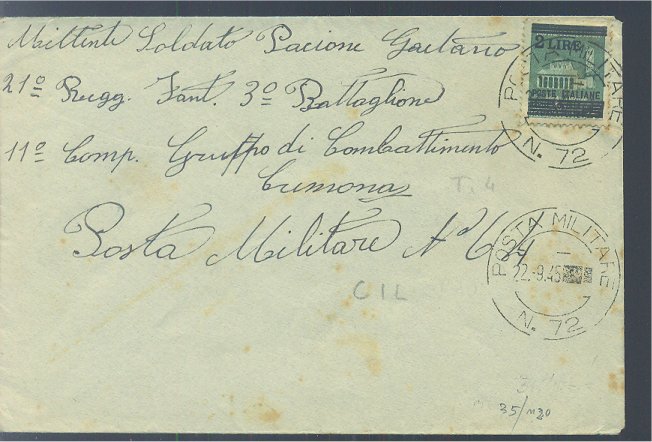 Mittente Soldato Pacione Gaetano
21º Regg. Fant. 3º Battaglione
11º Comp. Gruppo di Combattimento
Cremona
Posta Militare Nº
2 LIRE
POSTE ITALIANE
POSTA MILITARE
N. 72
T. 4
POSTA MILITARE
22.-9.45
N. 72
CIL
35/